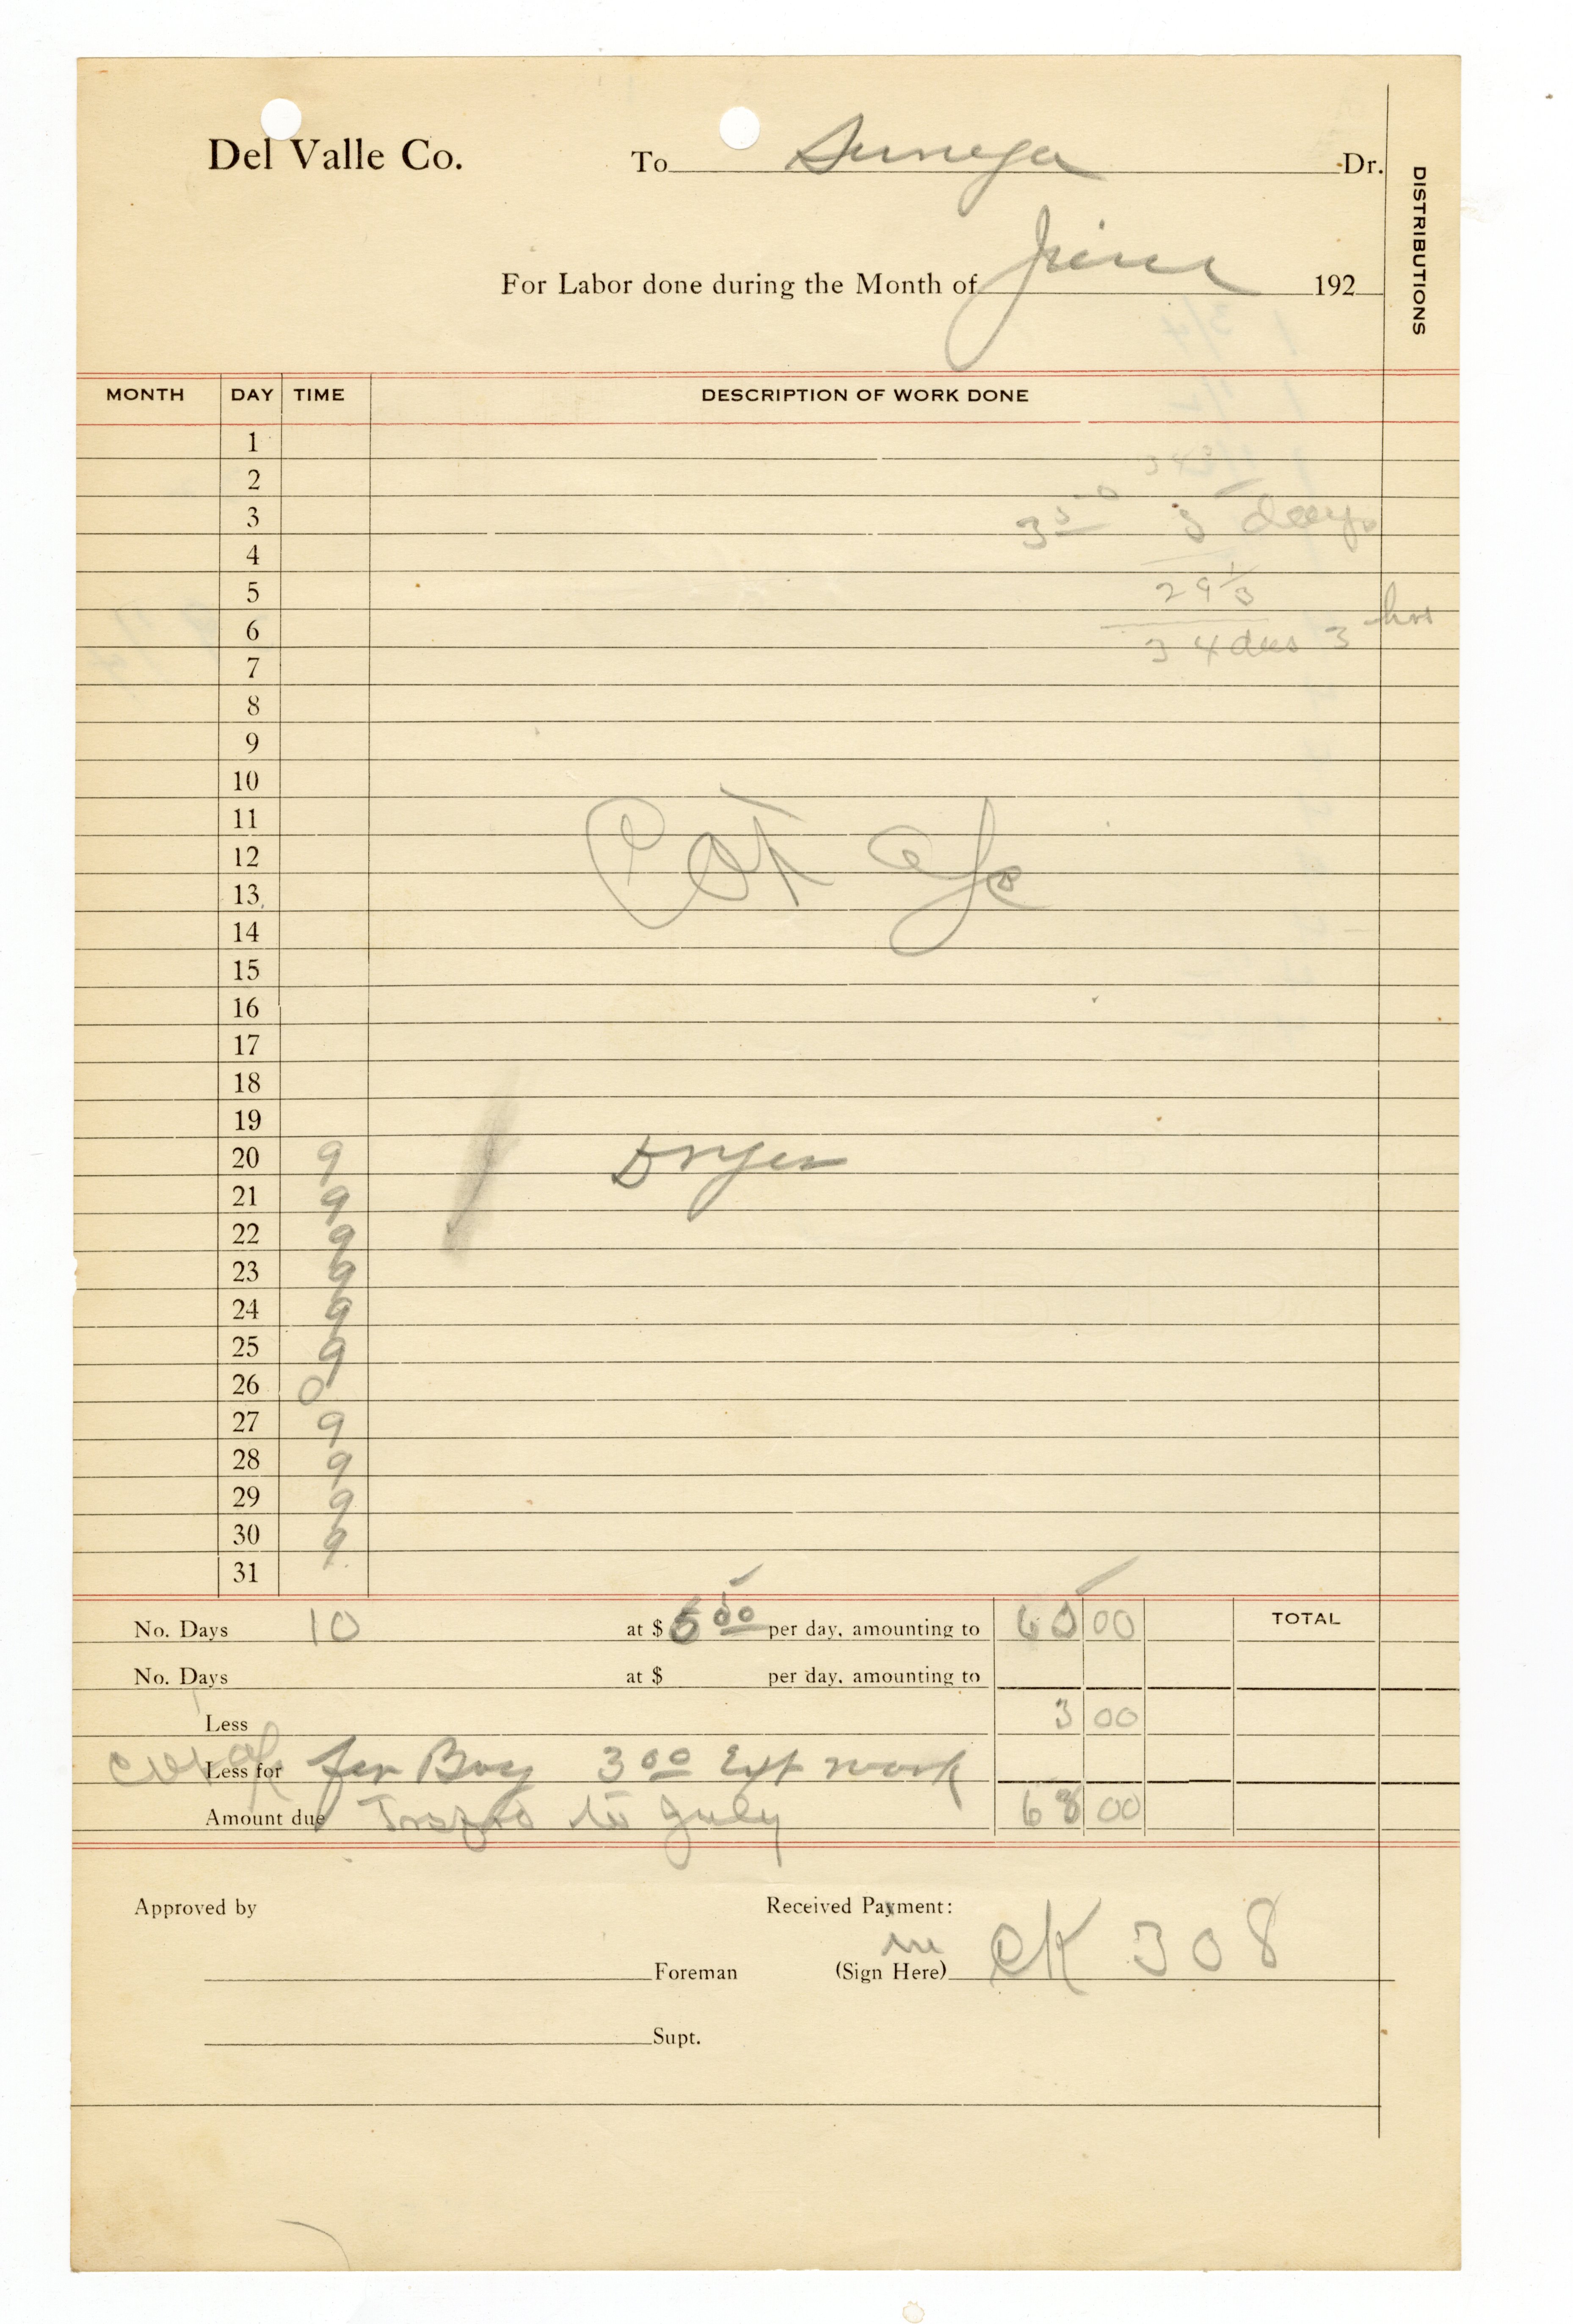 Del Valle Co. To Sunega Dr.
DISTRIBUTIONS
For Labor done during the Month of June 192
MONTH DAY TIME DESCRIPTION OF WORK DONE
1
2
3 3 50 3 days
4
5 29 1/3
6 hrs
7 34 3
8
9
10
11
12 Cot a/c
13
14
15
16
17
18
19
20 9 Dryer
21 9
22 9
23 9
24 9
25 9
26 0
27 9
28 9
29 9
30 9
31
No. Days 10 at $ 6 00 per day, amounting to 60 00 TOTAL
No. Days at $ per day, amounting to
Less 3 00
Less for for Boy 3 00 Ext work
Amount due to July 63 00
Approved by Received Payment:
Foreman (Sign Here) CK 308
Supt.